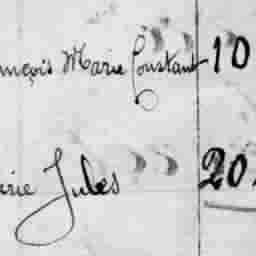 nçois Marie Constant 10
rie Jules 20